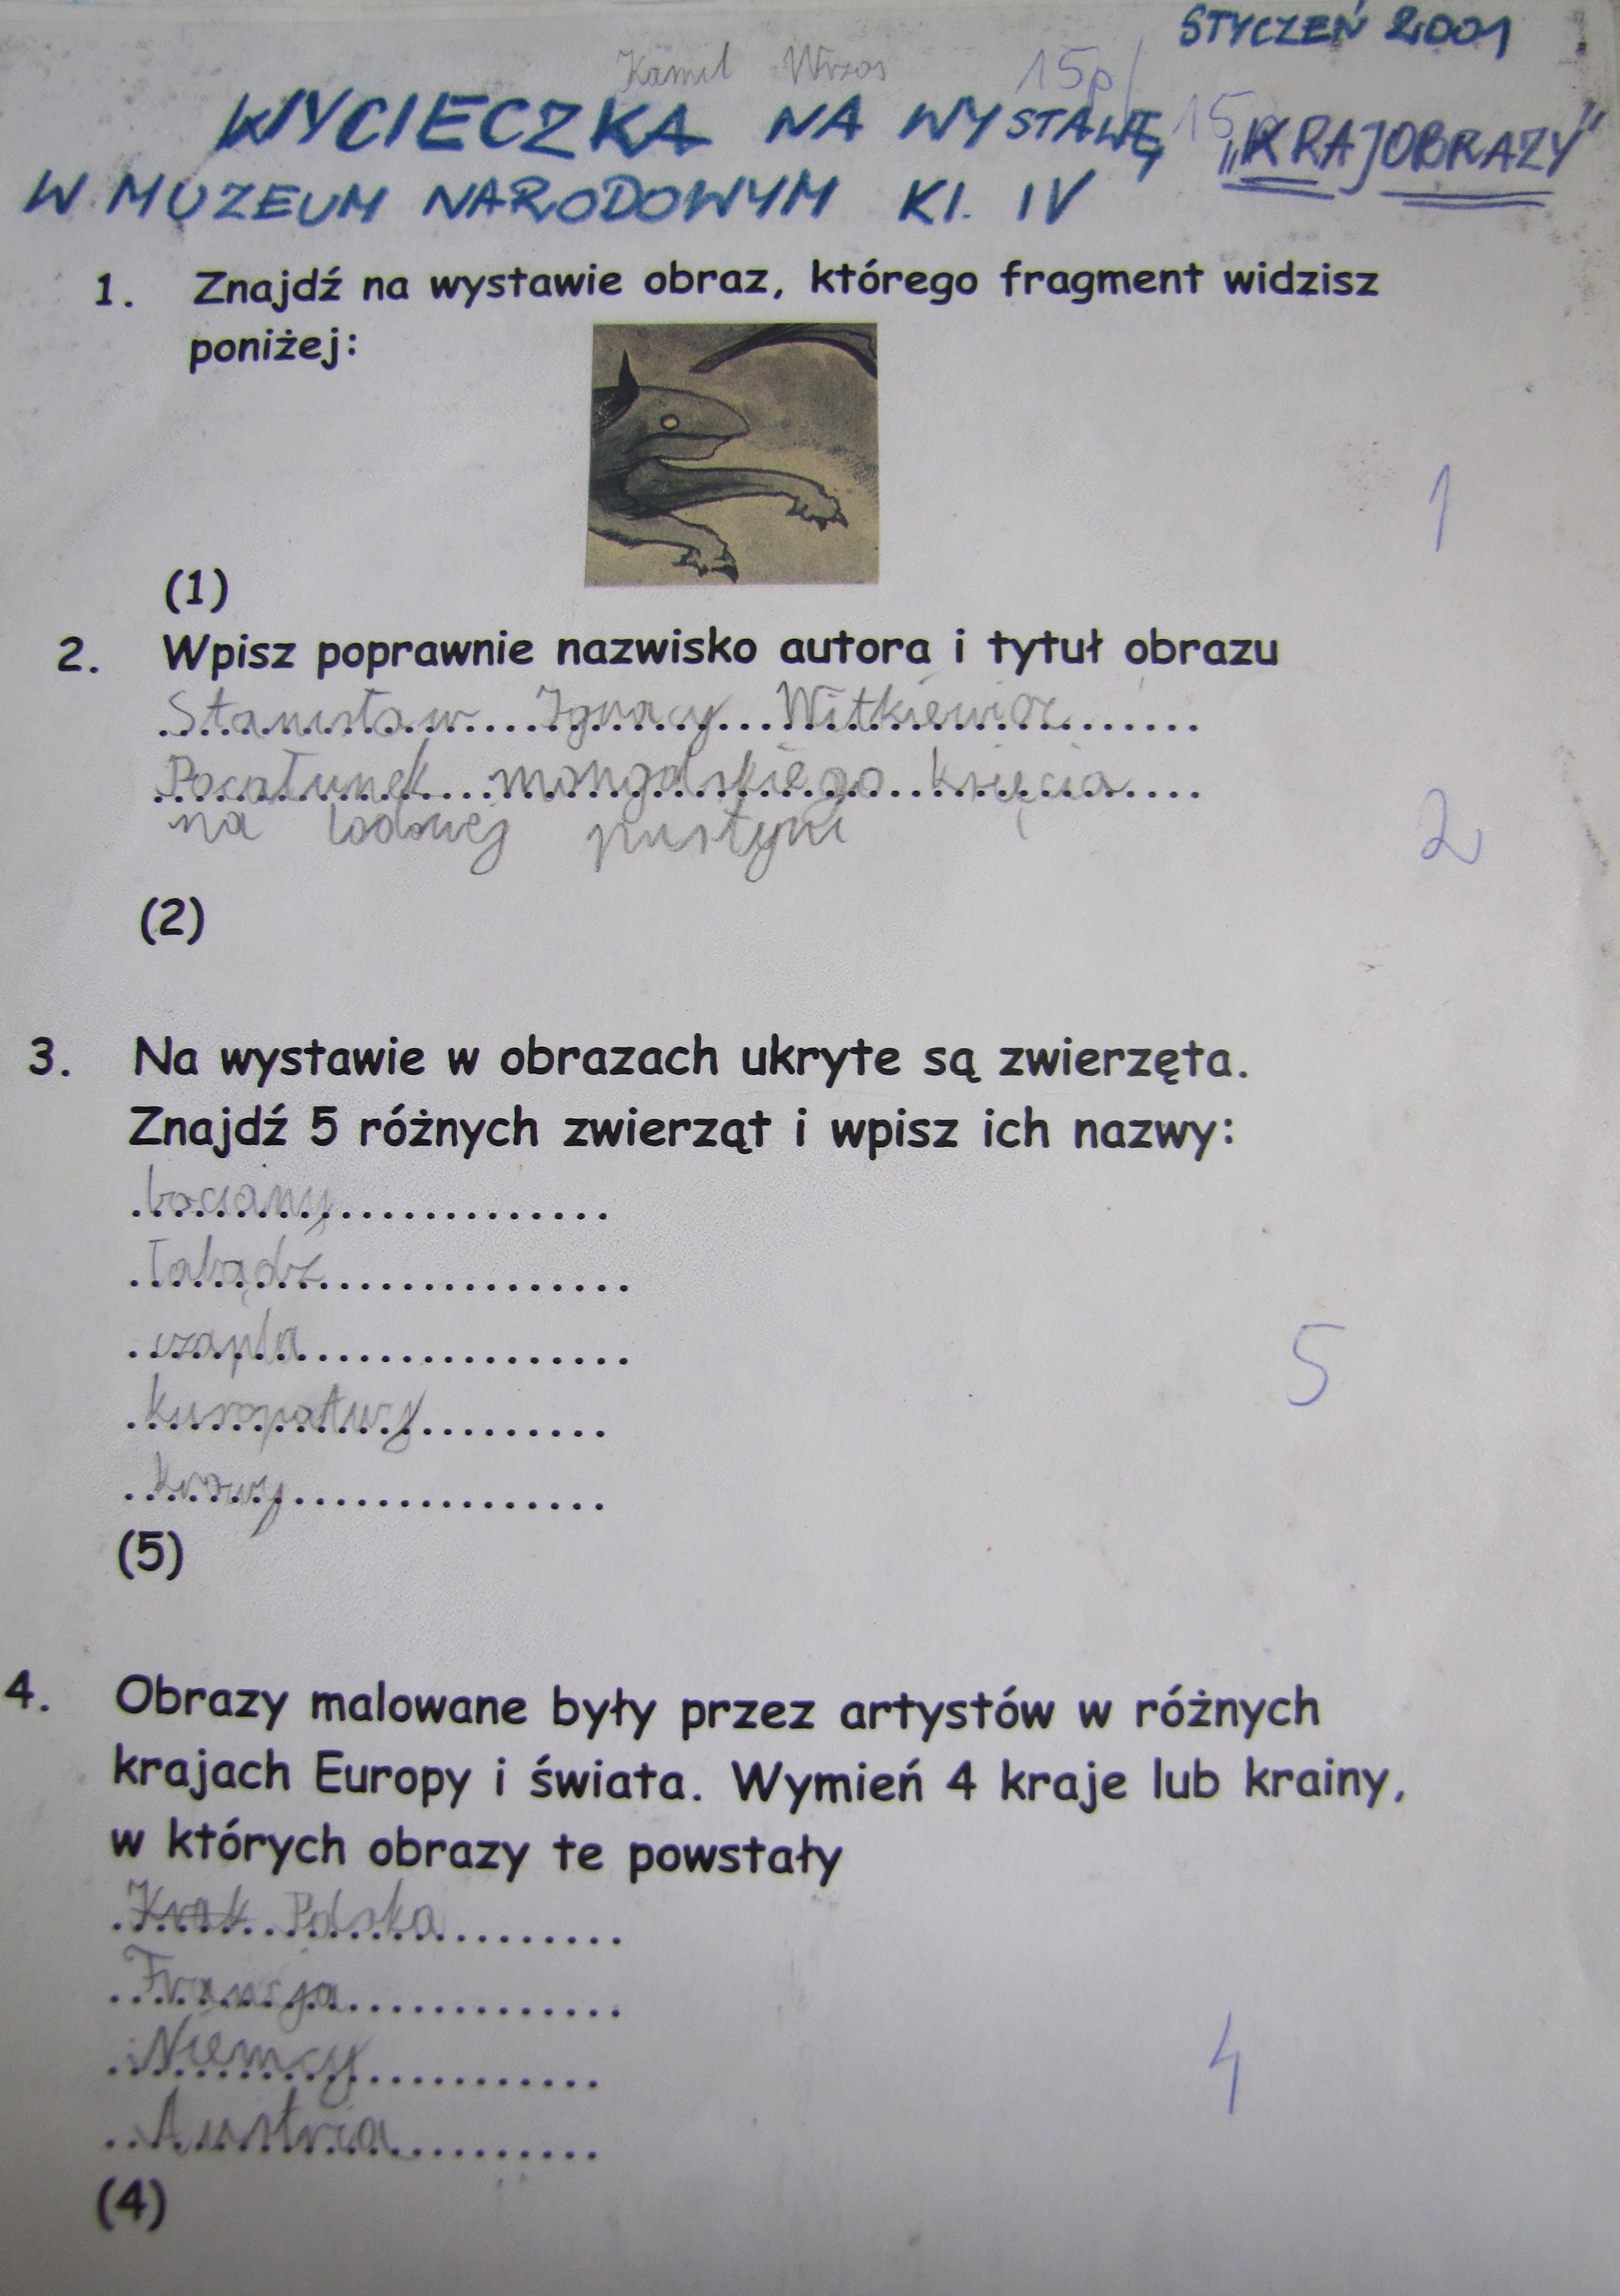 STYCZEŃ 2001
Kamil Wrzos 15p/
15p
WYCIECZKA NA WYSTAWĘ „KRAJOBRAZY”
W MUZEUM NARODOWYM Kl. IV
1. Znajdź na wystawie obraz, którego fragment widzisz
poniżej:
1
(1)
2. Wpisz poprawnie nazwisko autora i tytuł obrazu
Stanisław Ignacy Witkiewicz
Pocałunek mongolskiego księcia
na lodowej pustyni
2
(2)
3. Na wystawie w obrazach ukryte są zwierzęta.
Znajdź 5 różnych zwierząt i wpisz ich nazwy:
bociany
łabądz
czapla
5
kuropatwy
krowy
(5)
4. Obrazy malowane były przez artystów w różnych
krajach Europy i świata. Wymień 4 kraje lub krainy,
w których obrazy te powstały
Krak Polska
Francja
Niemcy
4
Austria
(4)